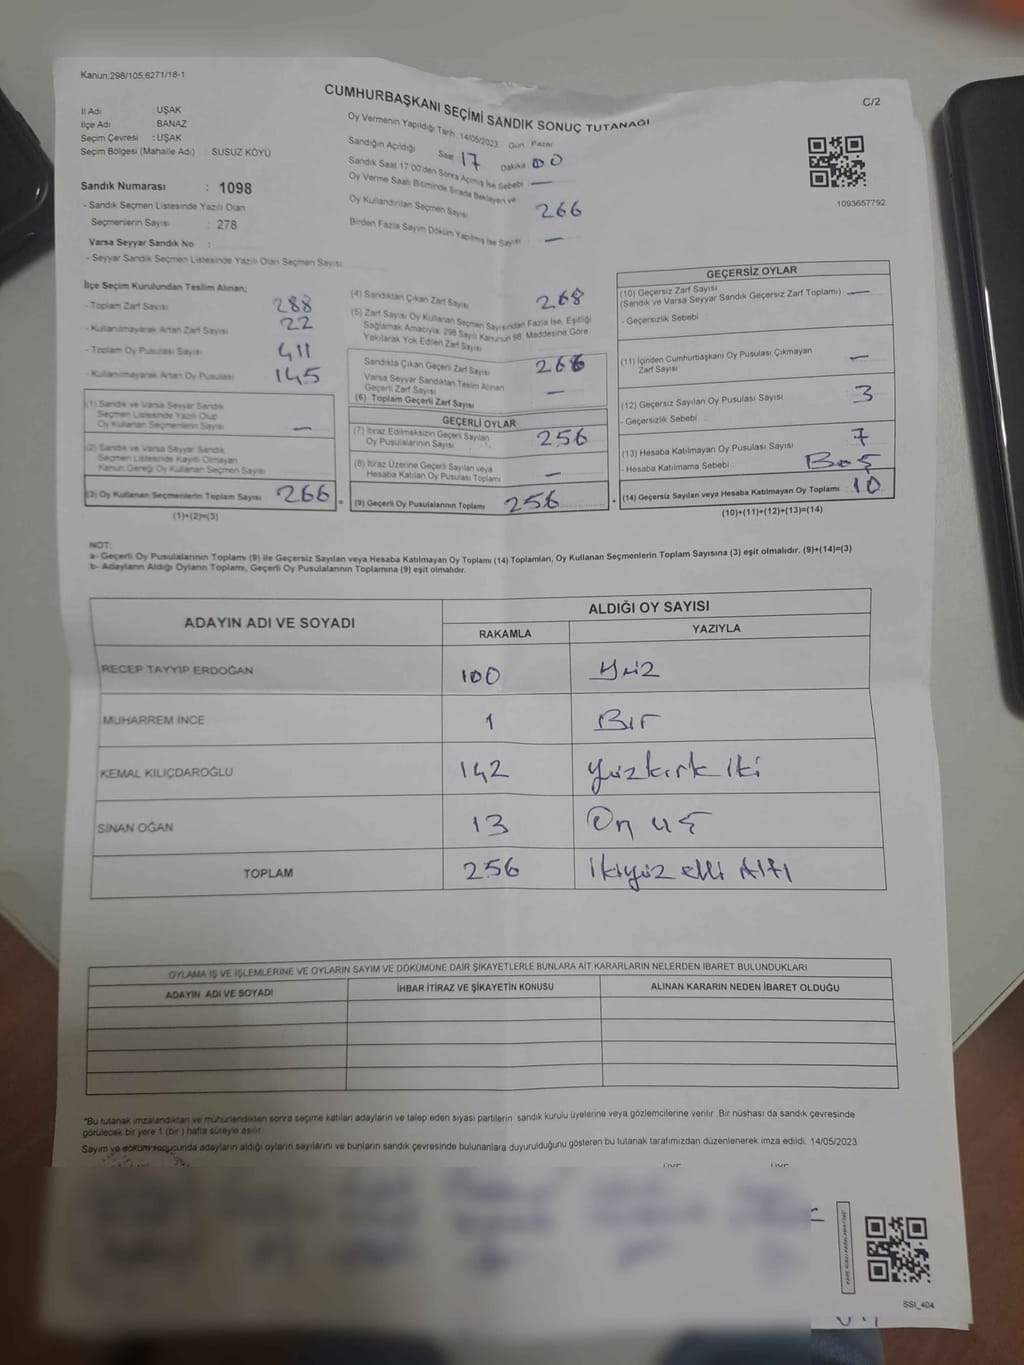 Kanun;298/105;6271/18-1
C/2
CUMHURBAŞKANI SEÇİMİ SANDIK SONUÇ TUTANAĞI
İl Adı : UŞAK
İlçe Adı : BANAZ
Seçim Çevresi : UŞAK
Seçim Bölgesi (Mahalle Adı) : SUSUZ KÖYÜ
Oy Vermenin Yapıldığı Tarih :14/05/2023 Gün : Pazar
Sandığın Açıldığı Saat : 17 Dakika : 00
Sandık Saat 17:00'den Sonra Açılmış İse Sebebi : —
Oy Verme Saati Bitiminde Sırada Bekleyen ve
Oy Kullandırılan Seçmen Sayısı 266
Birden Fazla Sayım Döküm Yapılmış İse Sayısı —
1093657792
Sandık Numarası : 1098
- Sandık Seçmen Listesinde Yazılı Olan
Seçmenlerin Sayısı : 278
Varsa Seyyar Sandık No :
- Seyyar Sandık Seçmen Listesinde Yazılı Olan Seçmen Sayısı:
İlçe Seçim Kurulundan Teslim Alınan;
- Toplam Zarf Sayısı 288
- Kullanılmayarak Artan Zarf Sayısı 22
- Toplam Oy Pusulası Sayısı 411
- Kullanılmayarak Artan Oy Pusulası 145
(1) Sandık ve Varsa Seyyar Sandık
Seçmen Listesinde Yazılı Olup
Oy Kullanan Seçmenlerin Sayısı —
(2) Sandık ve Varsa Seyyar Sandık
Seçmen Listesinde Kayıtlı Olmayan
Kanun Gereği Oy Kullanan Seçmen Sayısı
(3) Oy Kullanan Seçmenlerin Toplam Sayısı 266 =
(1)+(2)=(3)
(4) Sandıktan Çıkan Zarf Sayısı 268
(5) Zarf Sayısı Oy Kullanan Seçmen Sayısından Fazla İse, Eşitliği
Sağlamak Amacıyla, 298 Sayılı Kanunun 98. Maddesine Göre
Yakılarak Yok Edilen Zarf Sayısı
Sandıkta Çıkan Geçerli Zarf Sayısı 266
Varsa Seyyar Sandıktan Teslim Alınan
Geçerli Zarf Sayısı —
(6) Toplam Geçerli Zarf Sayısı
GEÇERLİ OYLAR
(7) İtiraz Edilmeksizin Geçerli Sayılan
Oy Pusulalarının Sayısı 256
(8) İtiraz Üzerine Geçerli Sayılan veya
Hesaba Katılan Oy Pusulası Toplamı —
(9) Geçerli Oy Pusulalarının Toplamı 256 +
GEÇERSİZ OYLAR
(10) Geçersiz Zarf Sayısı
(Sandık ve Varsa Seyyar Sandık Geçersiz Zarf Toplamı) : —
- Geçersizlik Sebebi :
(11) İçinden Cumhurbaşkanı Oy Pusulası Çıkmayan
Zarf Sayısı —
(12) Geçersiz Sayılan Oy Pusulası Sayısı 3
- Geçersizlik Sebebi :
(13) Hesaba Katılmayan Oy Pusulası Sayısı 7
- Hesaba Katılmama Sebebi : Boş
(14) Geçersiz Sayılan veya Hesaba Katılmayan Oy Toplamı 10
(10)+(11)+(12)+(13)=(14)
NOT:
a- Geçerli Oy Pusulalarının Toplamı (9) ile Geçersiz Sayılan veya Hesaba Katılmayan Oy Toplamı (14) Toplamları, Oy Kullanan Seçmenlerin Toplam Sayısına (3) eşit olmalıdır. (9)+(14)=(3)
b- Adayların Aldığı Oyların Toplamı, Geçerli Oy Pusulalarının Toplamına (9) eşit olmalıdır.
ADAYIN ADI VE SOYADI ALDIĞI OY SAYISI
RAKAMLA YAZIYLA
RECEP TAYYİP ERDOĞAN 100 Yüz
MUHARREM İNCE 1 Bir
KEMAL KILIÇDAROĞLU 142 yüzkırk iki
SİNAN OĞAN 13 On üç
TOPLAM 256 İkiyüz elli Altı
OYLAMA İŞ VE İŞLEMLERİNE VE OYLARIN SAYIM VE DÖKÜMÜNE DAİR ŞİKAYETLERLE BUNLARA AİT KARARLARIN NELERDEN İBARET BULUNDUKLARI
ADAYIN ADI VE SOYADI İHBAR İTİRAZ VE ŞİKAYETİN KONUSU ALINAN KARARIN NEDEN İBARET OLDUĞU
*Bu tutanak imzalandıktan ve mühürlendikten sonra seçime katılan adayların ve talep eden siyasi partilerin sandık kurulu üyelerine veya gözlemcilerine verilir. Bir nüshası da sandık çevresinde
görülecek bir yere 1 (bir ) hafta süreyle asılır.
Sayım ve döküm sonucunda adayların aldığı oyların sayılarını ve bunların sandık çevresinde bulunanlara duyurulduğunu gösteren bu tutanak tarafımızdan düzenlenerek imza edildi. 14/05/2023
SSI_404